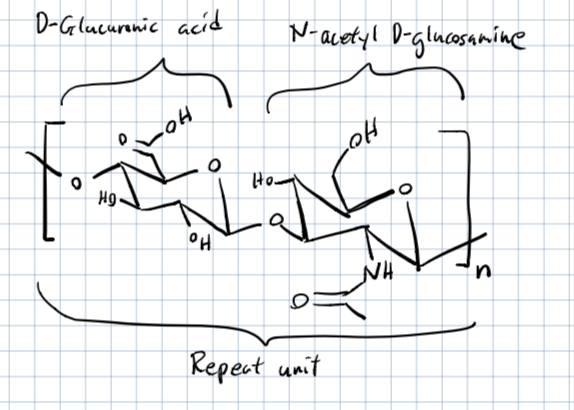 D-Glucuronic acid
N-acetyl D-glucosamine
O
OH
OH
O
O
HO
O
HO
OH
O
NH
O
n
Repeat unit